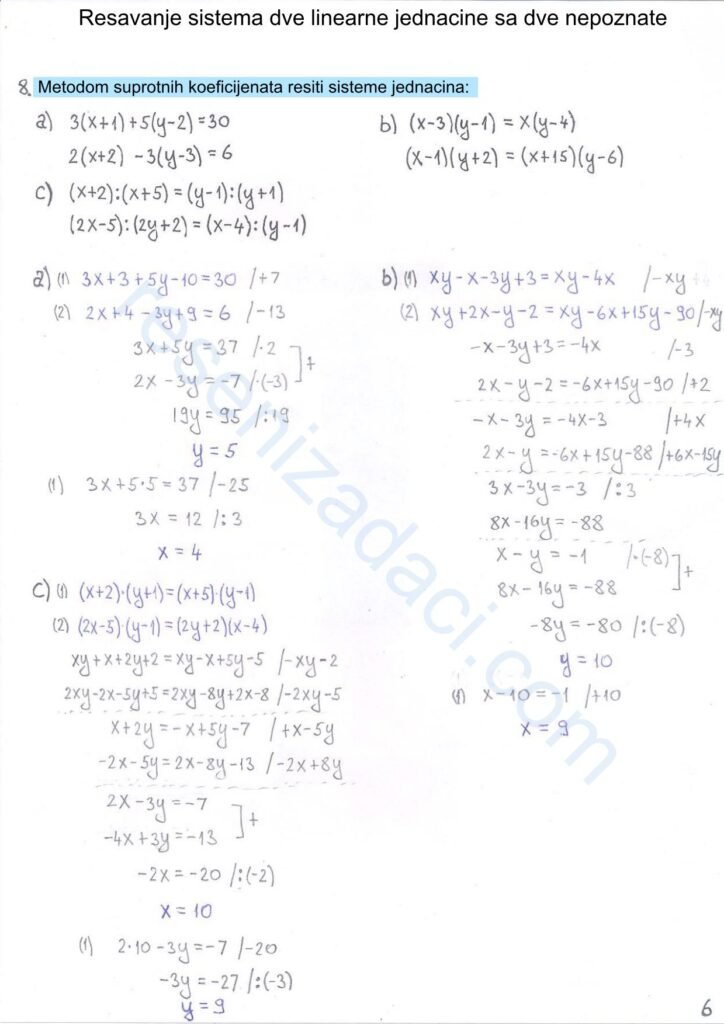 Resavanje sistema dve linearne jednacine sa dve nepoznate
8. Metodom suprotnih koeficijenata resiti sisteme jednacina:
a) 3(x+1)+5(y-2)=30
2(x+2) -3(y-3)=6
b) (x-3)(y-1) = x(y-4)
(x-1)(y+2) = (x+15)(y-6)
c) (x+2):(x+5) = (y-1):(y+1)
(2x-5):(2y+2) = (x-4):(y-1)
a) (1) 3x+3+5y-10=30 /+7
(2) 2x+4-3y+9=6 /-13
3x+5y=37 /·2
2x-3y=-7 /·(-3)
+
19y=95 /:19
y=5
(1) 3x+5·5=37 /-25
3x=12 /:3
x=4
b) (1) xy-x-3y+3=xy-4x /-xy
(2) xy+2x-y-2=xy-6x+15y-90 /-xy
-x-3y+3=-4x /-3
2x-y-2=-6x+15y-90 /+2
-x-3y=-4x-3 /+4x
2x-y=-6x+15y-88 /+6x-15y
3x-3y=-3 /:3
8x-16y=-88
x-y=-1 /·(-8)
8x-16y=-88
+
-8y=-80 /:(-8)
y=10
(1) x-10=-1 /+10
x=9
c) (1) (x+2)·(y+1)=(x+5)·(y-1)
(2) (2x-5)·(y-1)=(2y+2)(x-4)
xy+x+2y+2=xy-x+5y-5 /-xy-2
2xy-2x-5y+5=2xy-8y+2x-8 /-2xy-5
x+2y=-x+5y-7 /+x-5y
-2x-5y=2x-8y-13 /-2x+8y
2x-3y=-7
-4x+3y=-13
+
-2x=-20 /:(-2)
x=10
(1) 2·10-3y=-7 /-20
-3y=-27 /:(-3)
y=9
6
resenizadaci.com